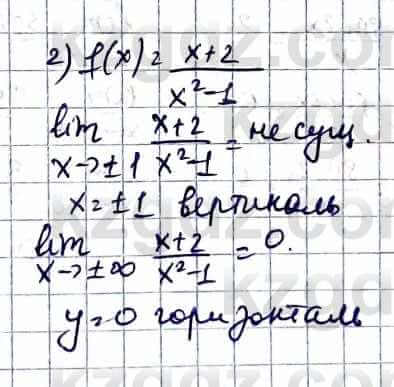 2) f(x) = x+2 / x²-1
lim x→±1 x+2 / x²-1 = не сущ.
x = ±1 вертикаль
lim x→±∞ x+2 / x²-1 = 0.
y = 0 горизонталь